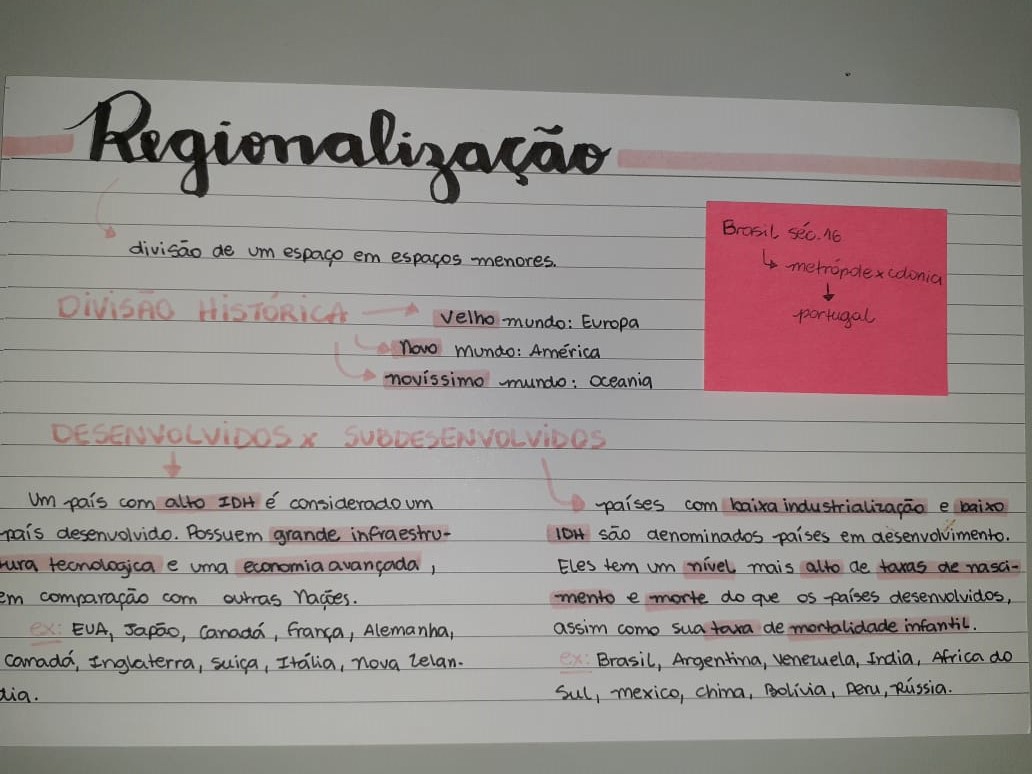 Regionalização
divisão de um espaço em espaços menores.
Brasil séc.16
↳ metrópole x colonia
↓
portugal
DIVISÃO HISTÓRICA → velho mundo: Europa
novo mundo: América
novíssimo mundo: Oceania
DESENVOLVIDOS x SUBDESENVOLVIDOS
Um país com alto IDH é considerado um
país desenvolvido. Possuem grande infraestru-
tura tecnologica e uma economia avançada,
em comparação com outras nações.
ex: EUA, Japão, Canadá, França, Alemanha,
Canadá, Inglaterra, Suiça, Itália, Nova Zelan-
dia.
países com baixa industrialização e baixo
IDH são denominados países em desenvolvimento.
Eles tem um nível mais alto de taxas de nasci-
mento e morte do que os países desenvolvidos,
assim como sua taxa de mortalidade infantil.
ex: Brasil, Argentina, Venezuela, India, Africa do
Sul, mexico, china, Bolívia, Peru, Rússia.